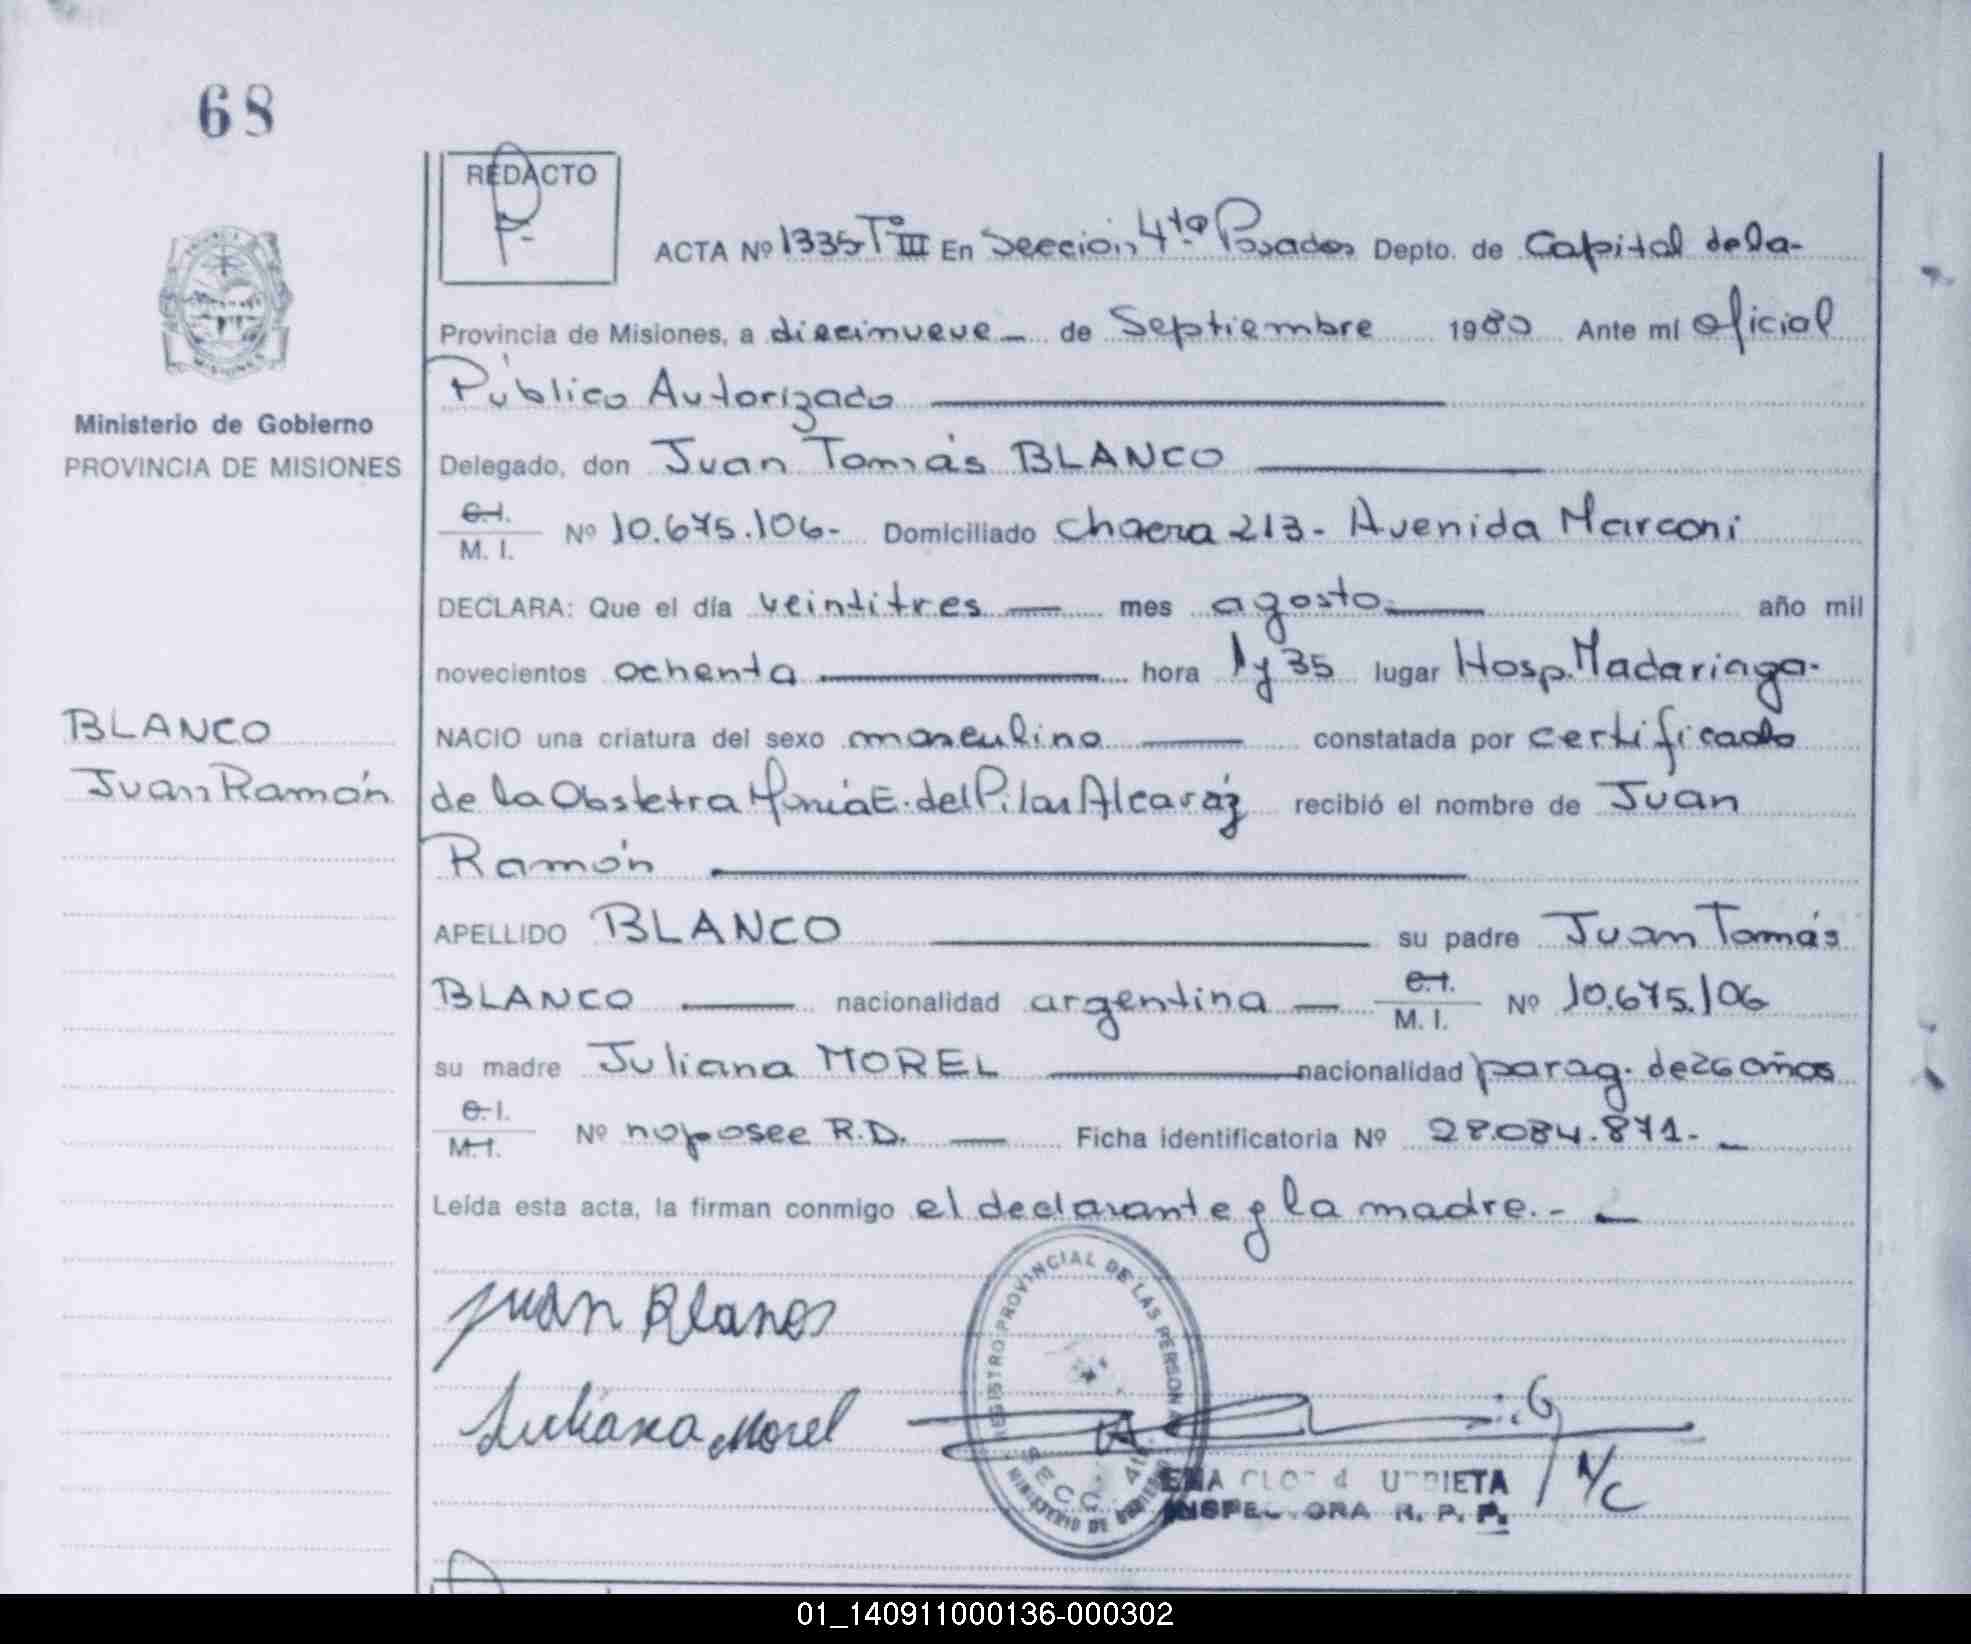 68
REDACTO
ACTA Nº 1335 Tº III En Sección 4ta Posadas Depto. de Capital de la-
Provincia de Misiones, a diecinueve de Septiembre 1980 Ante mí oficial
Público Autorizado
Ministerio de Gobierno
PROVINCIA DE MISIONES
Delegado, don Juan Tomás BLANCO
C.I. M. I. Nº 10.675.106- Domiciliado Chacra 213- Avenida Marconi
DECLARA: Que el día veintitres mes agosto año mil
novecientos ochenta hora 1 y 35 lugar Hosp. Madariaga-
BLANCO
Juan Ramón
NACIO una criatura del sexo masculino constatada por certificado
de la Obstetra María E. del Pilar Alcaráz recibió el nombre de Juan
Ramón
APELLIDO BLANCO su padre Juan Tomás
BLANCO nacionalidad argentina C.I. M. I. Nº 10.675.106
su madre Juliana MOREL nacionalidad parag. de 26 años
C.I. M.I. Nº no posee R.D. Ficha identificatoria Nº 28.084.871.-
Leída esta acta, la firman conmigo el declarante y la madre.-
Juan Blanco
Juliana Morel
REGISTRO PROVINCIAL DE LAS PERSONAS
SECC. 4ta
MINISTERIO DE GOBIERNO
A/C
INSPECTORA R. P. P.
01_140911000136-000302